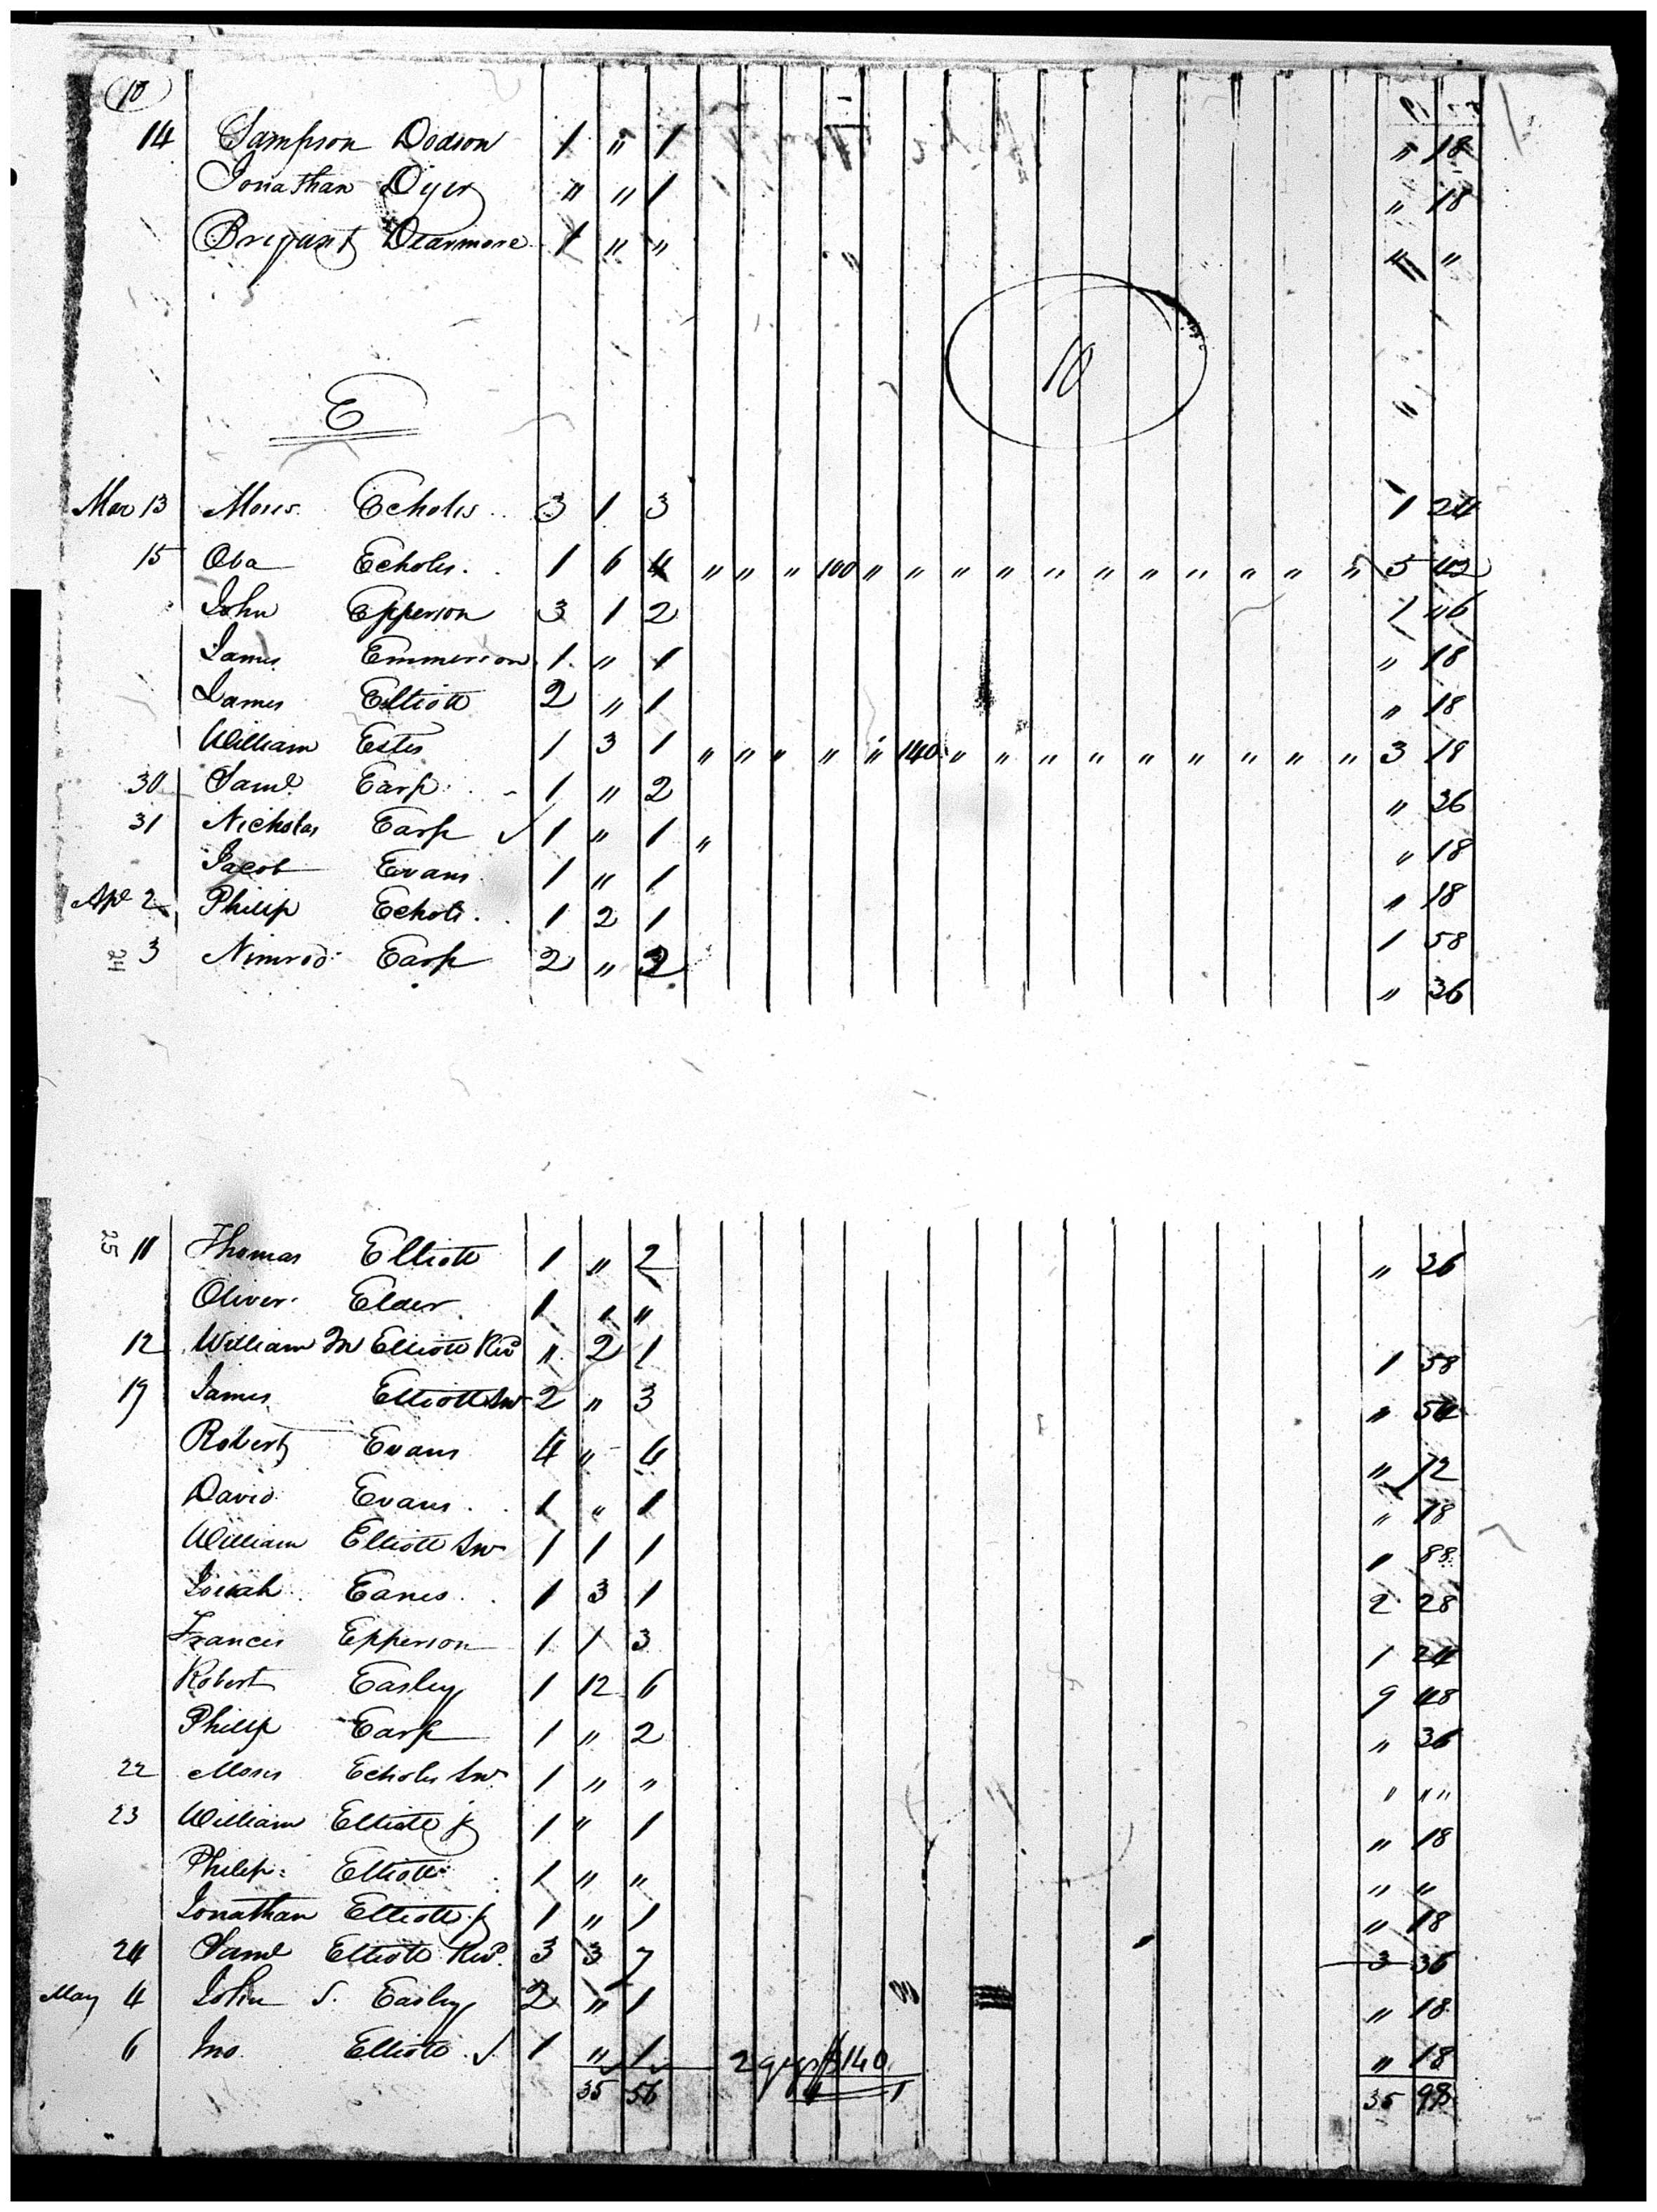 10
14 Sampson Dodson 1 " 1 " 18
Jonathan Dyer " " 1 " 18
Bryant Dearmore 1 " " " " "
10
E
"
Mar 13 Moses Echols 3 1 3 1 24
15 Oba Echols 1 6 4 " " " 100 " " " " " " " " " " " 5 42
John Epperson 3 1 2 1 06
James Emmerson 1 " 1 " 18
James Elliott 2 " 1 " 18
William Estes 1 3 1 " " " " " 140 " " " " " " " " " 3 18
30 Saml Earp 1 " 2 " 36
31 Nicholas Earp ✓ 1 " 1 " " 18
Jacob Evans 1 " 1 " 18
Apl 2 Philip Echols 1 2 1 1 58
24 3 Nimrod Earp 2 " 2 " 36
25 11 Thomas Elliott 1 " 2 " 36
Oliver Elder 1 " "
12 William M Elliott Riv " 2 1 1 58
19 James Elliott Snr 2 " 3 " 54
Robert Evans 4 " 4 " 72
David Evans 1 " 1 " 18
William Elliott Snr 1 1 1 " 88
Josiah Eanes 1 3 1 2 28
Francis Epperson 1 1 3 1 24
Robert Easley 1 12 6 9 48
Philip Earp 1 " 2 " 36
22 Moses Echols Snr 1 " " " " "
23 William Elliott Jr 1 " 1 " 18
Philip Elliott 1 " " " "
Jonathan Elliott Jr 1 " 1 " 18
24 Saml Elliott Riv 3 3 7 3 36
May 4 John S. Easley 2 " 1 " 18
6 Jno Elliott ✓ 1 " 1 2 gigs $140 " 18
35 56 35 98